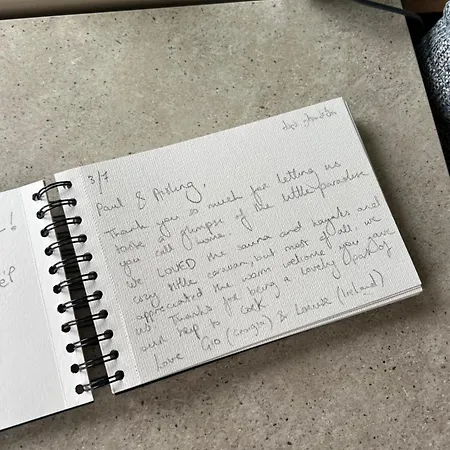 3/7
Paul & Aisling,
Thank you so much for letting us
take a glimpse of the little paradise
you call home.
We LOVED the sauna and kayaks and
cozy little caravan, but most of all, we
appreciated the warm welcome you gave
us. Thanks for being a lovely part of
our trip to Cork
Love Gio (Georgia) & Louise (Ireland)